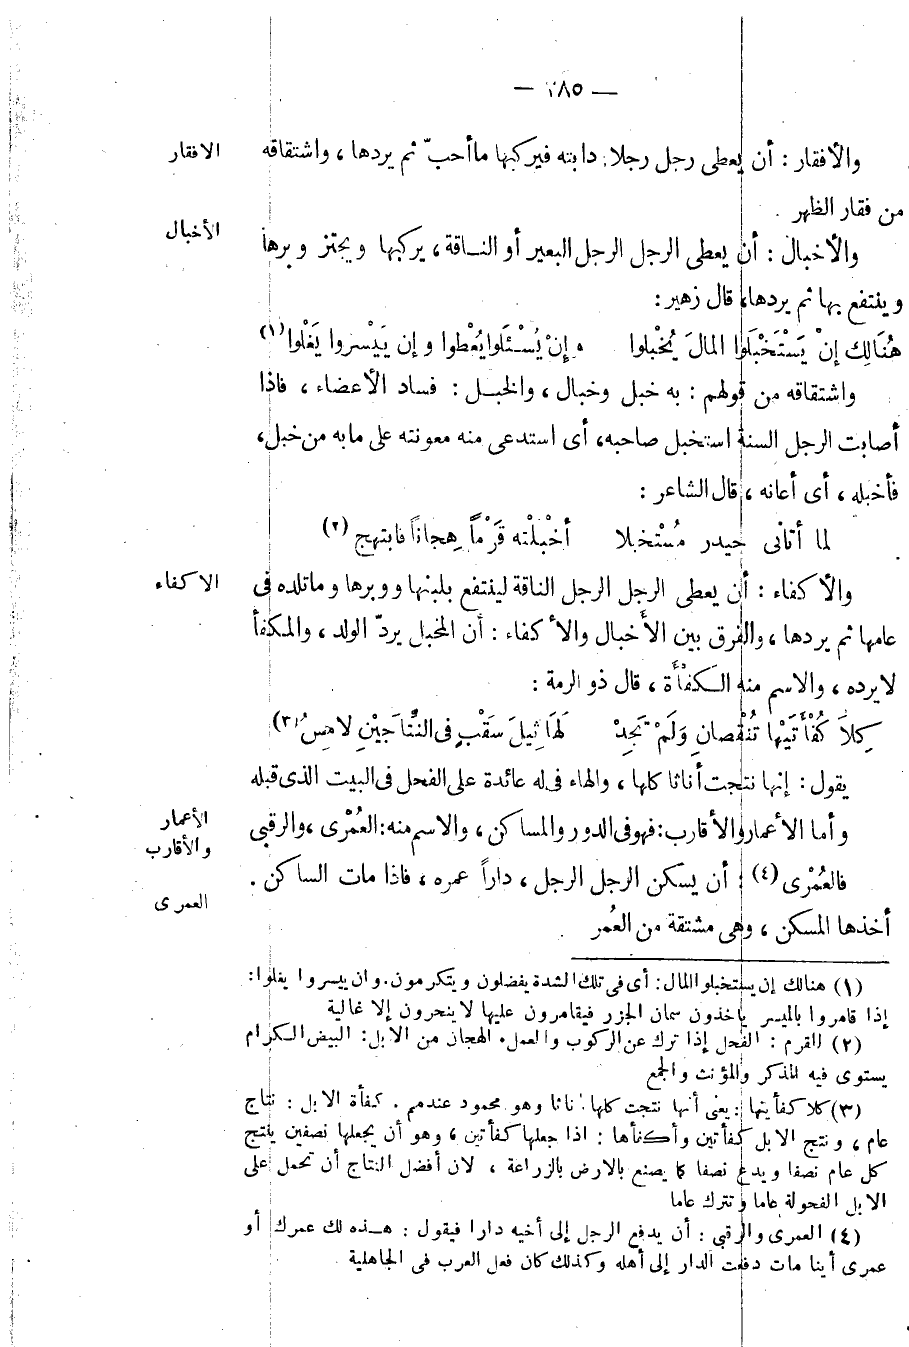 — ٢٨٥ —
والأفقار : أن يعطى رجل رجلا دابته فيركبها ما أحبّ ثم يردها ، واشتقاقه
الافقار
من فقار الظهر .
والأخبال : أن يعطى الرجل الرجل البعير أو الناقة ، يركبها ويجتز وبرها
الأخبال
وينتفع بها ثم يردها، قال زهير :
هُنَالِكَ إنْ يَسْتَخْبَلَوُا المالَ يُخْبلوا وإِنْ يُسْئَلوا يُعْطوا وإن يَيْسروا يَغْلوا (١)
واشتقاقه من قولهم : به خبل وخبال ، والخبل : فساد الأعضاء ، فاذا
أصابت الرجل السنة استخبل صاحبه، أى استدعى منه معونته على مابه من خبل،
فأخبله ، أى أعانه ، قال الشاعر :
لما أتانى حيدر مُسْتخبلا أخْبلْته قَرْماً هِجاناً فابتهج (٢)
والأكفاء : أن يعطى الرجل الرجل الناقة لينتفع بلبنها ووبرها وماتلده فى
الاكفاء
عامها ثم يردها ، والفرق بين الأخبال والأكفاء : أن المخبل يردّ الولد ، والمكفأ
لايرده ، والاسم منه الكفْأَة ، قال ذو الرمة :
كِلاَ كُفْأَتَيْها تُنْقْصانِ وَلَمْ تَجِدْ لَهَا ثِيلَ سَقْبٍ فى النِّتَاجَيْنِ لامِسُ (٣)
يقول : إنها نتجت أناثا كلها ، والهاء فى له عائدة على الفحل فى البيت الذى قبله
وأما الأعمار والأقارب: فهو فى الدور والمساكن ، والاسم منه: العُمْرى ، والرقبى
الأعمار
والأقارب
فالعُمْرى (٤) : أن يسكن الرجل الرجل ، داراً عمره ، فاذا مات الساكن .
العمرى
أخذها المسكن ، وهى مشتقة من العُمر
(١) هنالك إن يستخبلوا المال: أى فى تلك الشدة يفضلون ويتكرمون. وان ييسروا يغلوا:
إذا قامروا بالميسر ياخذون سمان الجزر فيقامرون عليها لاينحرون إلا غالية
(٢) القرم : الفحل إذا ترك عن الركوب والعمل. الهجان من الابل: البيض الكرام
يستوى فيه المذكر والمؤنث والجمع
(٣) كلا كفأتيها : يعنى أنها نتجت كلها اناثا وهو محمود عندهم . كفأة الابل : نتاج
عام ، ونتج الابل كفأتين وأكفأها : اذا جعلها كفأتين ، وهو أن يجعلها نصفين ينتج
كل عام نصفا ويدع نصفا كما يصنع بالارض بالزراعة ، لان أفضل النتاج أن تحمل على
الابل الفحولة عاما وتترك عاما
(٤) العمرى والرقبى : أن يدفع الرجل إلى أخيه دارا فيقول : هذه لك عمرك أو
عمرى أينا مات دفعت الدار إلى أهله وكذلك كان فعل العرب فى الجاهلية